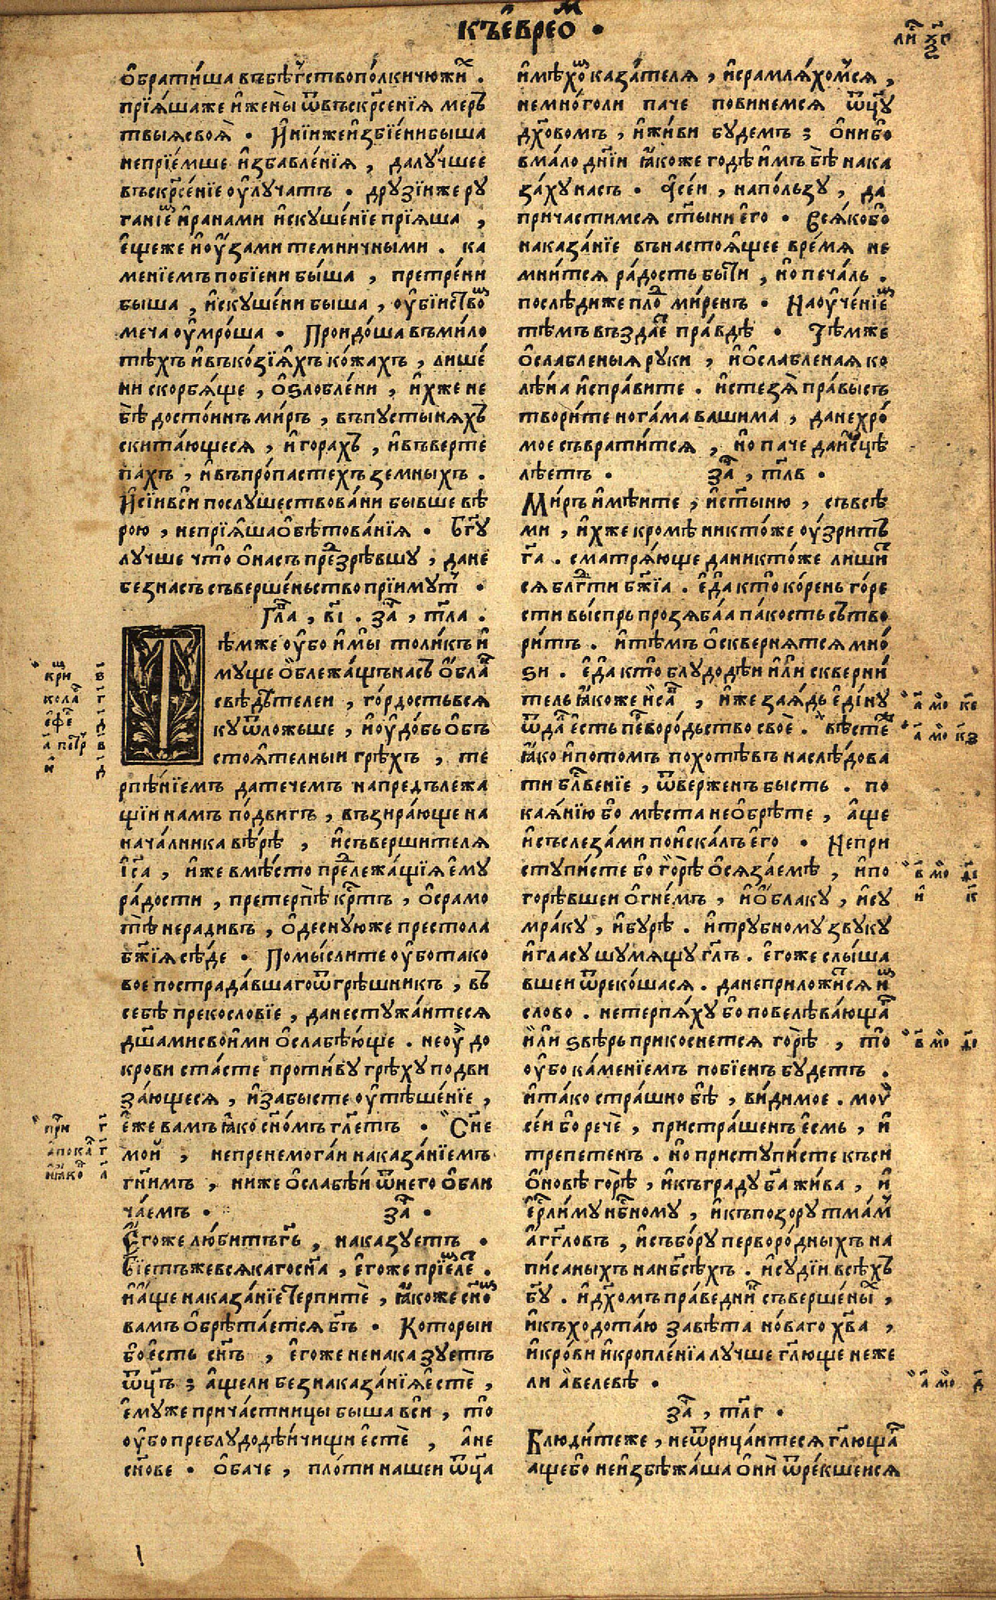 къ еврео м .
обратиша въ бѣгство полки чюжи х .
прїяша же и жены ѿ въскр҃сенїя мерт
твыя своя . Ини же избїени быша
не прїемше избавленїя , да лучшее
въскр҃сенїе оулучатъ . друзїи же ру
ганїе м и ранами искушенїе прїяша ,
еще же и оузами темничными . ка
менїемъ побїени быша , претрени
быша , искушени быша , оубїиством
меча оумроша . Проидоша въ мило
тѣхъ и въ козїяхъ кожахъ , лише
ни скорбяще , оѕлоблени , ихже не
бѣ достоинъ миръ , въ пустыняхъ
скитающеся , и горахъ , и въ верте
пахъ , и въ пропастехъ земныхъ .
И сїи вси послушествовани бывше вѣ
рою , не прїяша обѣтованїя . Бг҃у
лучше что о насъ презрѣвшу , да не
без насъ съвершеньство прїимут .
Гла , в҃і . за , тл҃а .
Тѣмже оубо и мы толикъ и
муще облежащъ насъ облак
свѣдѣтелеи , гордость вся
ку ѿложьше , и оудобь объ
стоятелныи грѣхъ , те
рпѣнїемъ да течемъ на предълежа
щїи намъ подвигъ , възирающе на
началника вѣрѣ , и съвершителя
І҃са , иже вмѣсто прележащїя ему
радости , претерпѣ кр҃тъ , о срамо
тѣ нерадивъ , одесную же престола
бж҃їя сѣде . Помыслите оубо тако
вое пострадавшаго ѿ грѣшникъ , въ
себѣ прекословїе , да не стужаитеся
дш҃ами своими ослабѣюще . не оу до
крови стасте противу грѣху подви
зающеся , и забысте оутѣшенїе ,
еже вамъ яко сн҃омъ гл҃етъ . Сн҃е
мои , не пренемогаи наказанїемъ
гн҃имъ , ниже ослабѣи ѿ него обли
чаемъ . за .
Егоже любитъ гь , наказуетъ .
Бїетъ же всякаго сн҃а , егоже прїемлет .
И аще наказанїе терпите , якоже сн҃ом
вамъ обрѣтается бг҃ъ . Которыи
бо есть сн҃ъ , егоже не наказуетъ
ѿц҃ъ ; аще ли без наказанїя есте ,
емуже причастницы быша вси , то
оубо преблудодѣичищи есте , а не
сн҃ове . Обаче , плоти нашеи ѿц҃а
имѣхом казателя , и срамляхомся ,
не много ли паче повинемся ѿц҃у
дх҃овомъ , и живи будемъ ; они бо
вмало днїи якоже годѣ имъ бѣ нака
заху насъ . а сеи , на ползу , да
причастимся ст҃ыни его . Всяко бо
наказанїе въ настоящее время не
мнится радость быти , но печаль .
послѣди же плод миренъ . Наученїем
тѣмъ въздает правдѣ . Тѣмже
ослабленыя руки , и ослабленая ко
лѣна исправите . и стезя правыхъ
творите ногама вашима , да не хро
мое съвратится , но паче да исцѣ
лѣетъ . за , тл҃в .
Миръ имѣите , и ст҃ыню , съ всѣ
ми , ихже кромѣ никтоже оузритъ
г҃а . сматряюще да никтоже лишит
ся блг҃ти бж҃їа . еда кто корень горе
сти выспрь прозябаа пакость сътво
ритъ . и тѣмъ осквернятся мно
ѕи . еда кто блудодѣи или скверни
тель якоже исав , иже за ядь едину
ѿдал есть первородьство свое . вѣсте
яко и потомъ похотѣвъ наслѣдова
ти бл҃венїе , ѿверженъ бысть . по
каянїю бо мѣста не обрѣте , аще
и съ слезами поискалъ его . Не при
ступисте бо горѣ осязаемѣ , и по
горѣвшеи огнемъ , и облаку , и су
мраку , и бурѣ . и трубному звуку
и гласу шумящу гл҃ъ . егоже слыша
вшеи ѿрекошася . да не приложится им
слово . не терпяху бо повелѣвающаго
или ѕвѣрь прикоснется горѣ , то
оубо каменїемъ побїенъ будетъ .
и тако страшно бѣ , видимое . моу
сеи бо рече , пристрашенъ есмь , и
трепетенъ . но приступисте къ си
оновѣ горѣ , и къ граду б҃а жива , и
ер҃лиму нб҃ному , и къ позору тмам
агг҃ловъ , и събору первородныхъ на
писаныхъ на нб҃сѣхъ . и судїи всѣхъ
б҃у . и дх҃омъ праведник съвершены х ,
и къ ходотаю завѣта новаго х҃ва ,
и крови и кропленїа лучше гл҃юще неже
ли авелевѣ .
за , тл҃г .
Блюдите же , не ѿрицаитеся гл҃юща
аще бо не избѣжаша они ѿрекшеися